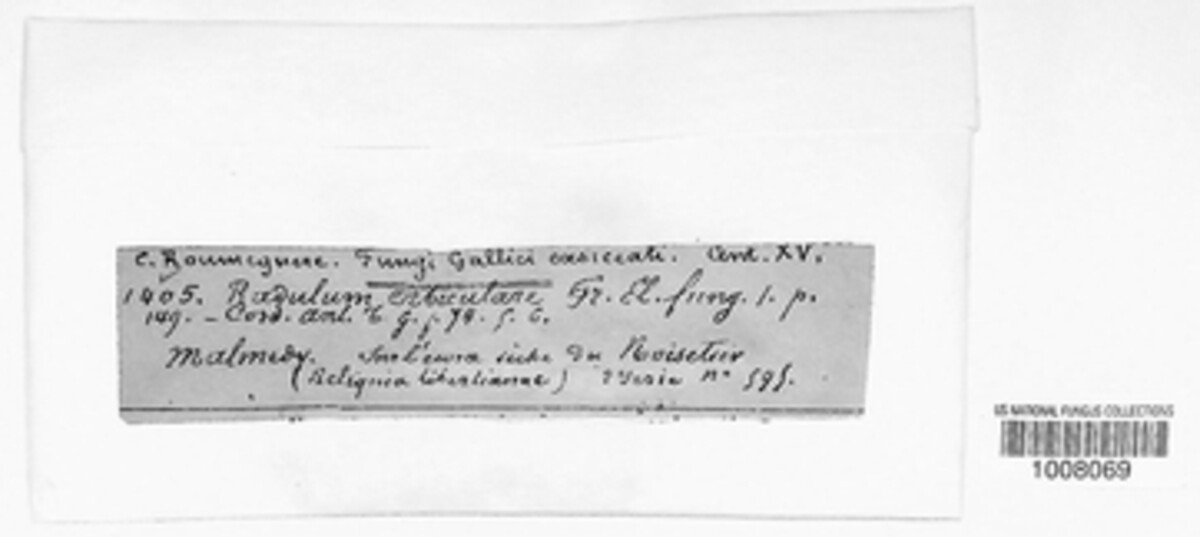 C. Roumeguere. Fungi Gallici exsiccati. Cent. XV.
1405. Radulum orbiculare Fr. El. fung. 1. p.
149. – Cord. ant. t. g. f. 
Malmedy. Sur l'ecorce seche du Noisetier
(Reliquia libertianae) 2e Serie no 595.
US NATIONAL FUNGUS COLLECTIONS
1008069